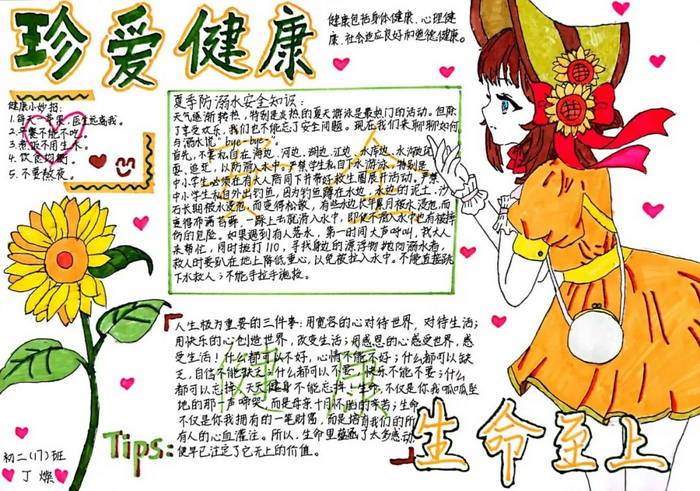 珍爱健康
健康包括身体健康、心理健
康、社会适应良好和道德健康。
健康小妙招:
1.每天一苹果,医生远离我。
2.早餐不能不吃。
3.煮饭不用生水。
4.饮食均衡。
5.不要熬夜。
夏季防溺水安全知识:
天气逐渐转热,特别是炎热的夏天游泳是最热门的活动。但除
了享受欢乐,我们也不能忘了安全问题。现在我们来聊聊如何
与溺水说"bye-bye"
首先,不要私自在海边、河边、湖边、江边、水库边、水沟边玩
耍、追赶,以防滑入水中。严禁学生私自下水游泳。特别是
中小学生必须在有大人陪同下并带好救生圈展开活动。严禁
中小学生私自外出钓鱼,因为钓鱼蹲在水边,水边的泥土、沙
石长期被水浸泡,而变得松散,有些水边长年累月被水浸泡,而
重得布满苔藓,一踩上去就滑入水中,即使不滑入水中也有被摔
倒的危险。如果遇到有人落水,第一时间大声呼叫,找大人
来帮忙,同时拨打110,寻找身边的漂浮物抛向溺水者,
救人时要趴在地上降低重心,以免被拉入水中。不能直接跳
下水救人;不能手拉手施救。
人生极为重要的三件事:用宽容的心对待世界,对待生活;
用快乐的心创造世界,改变生活;用感恩的心感受世界,感
受生活!什么都可以不好,心情不能不好;什么都可以缺
乏,自信不能缺乏;什么都可以不要,快乐不能不要;什么
都可以忘掉,天天健身不能忘掉。生命,不仅是你我呱呱坠
地的那一声啼哭,而是母亲十月怀胎的辛苦;生命
不仅是你我拥有的一笔财富,而是培育我们的所
有人的心血灌注。所以,生命里蕴涵了太多感动,
便早已注定了它无上的价值。
健康
Tips:
生命至上
初二(17)班
丁燦